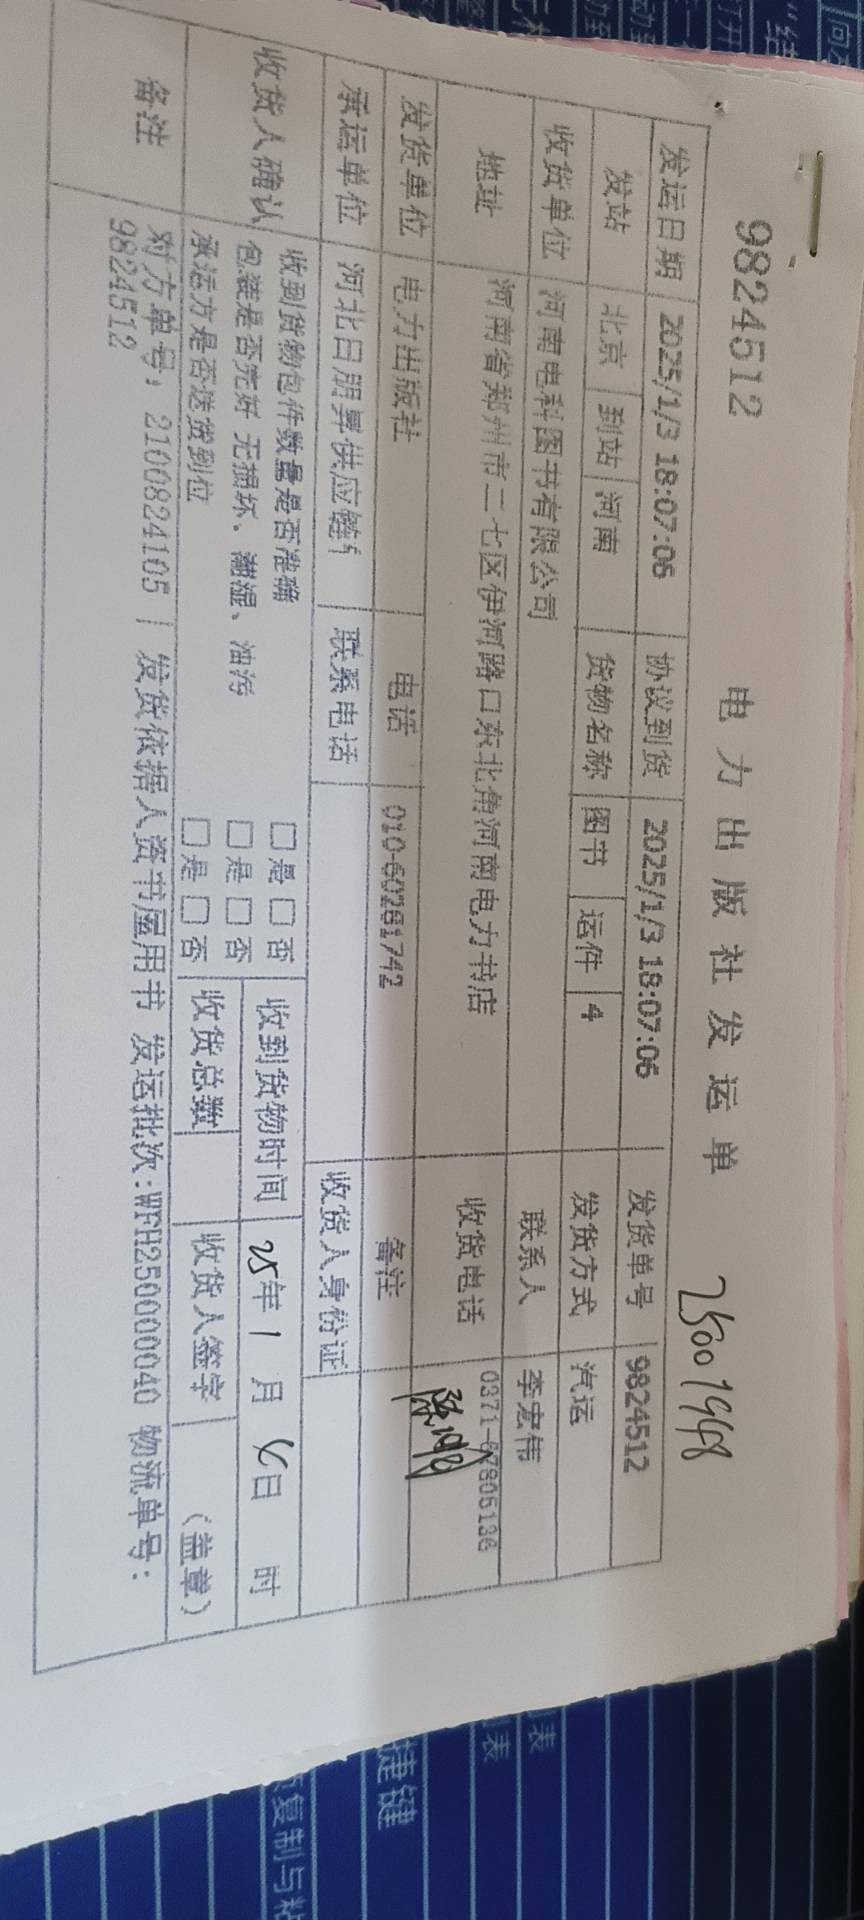 9824512
电力出版社发运单
25001948
发运日期 2025/1/3 18:07:06 协议到货 2025/1/3 18:07:06 发货单号 9824512
发站 北京 到站 河南 货物名称 图书 运件 4 发货方式 汽运
收货单位 河南电科图书有限公司 联系人 李宏伟
地址 河南省郑州市二七区伊河路口东北角河南电力书店 收货电话 0371-67905136
发货单位 电力出版社 电话 010-60281742 备注
承运单位 河北日朋昇供应链 联系电话 收货人身份证
收货人确认
收到货物包件数量是否准确 □是□否 收到货物时间 25年1月6日 时
包装是否完好 无损坏、潮湿、油污 □是□否
承运方是否送货到位 □是□否 收货总数 收货人签字 (盖章)
备注
对方单号:2100824105 | 发货依据人资书屋用书 发运批次:WFH250000040 物流单号:
9824512
捷键
复制与粘
列表
列表